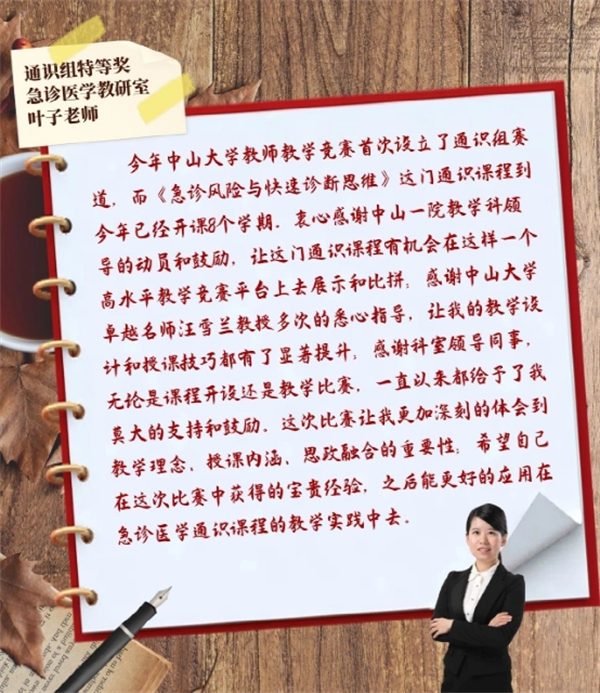 通识组特等奖
急诊医学教研室
叶子老师
今年中山大学教师教学竞赛首次设立了通识组赛
道，而《急诊风险与快速诊断思维》这门通识课程到
今年已经开课8个学期。衷心感谢中山一院教学科领
导的动员和鼓励，让这门通识课程有机会在这样一个
高水平教学竞赛平台上去展示和比拼；感谢中山大学
卓越名师汪雪兰教授多次的悉心指导，让我的教学设
计和授课技巧都有了显著提升；感谢科室领导同事，
无论是课程开设还是教学比赛，一直以来都给予了我
莫大的支持和鼓励。这次比赛让我更加深刻的体会到
教学理念、授课内涵、思政融合的重要性；希望自己
在这次比赛中获得的宝贵经验，之后能更好的应用在
急诊医学通识课程的教学实践中去。